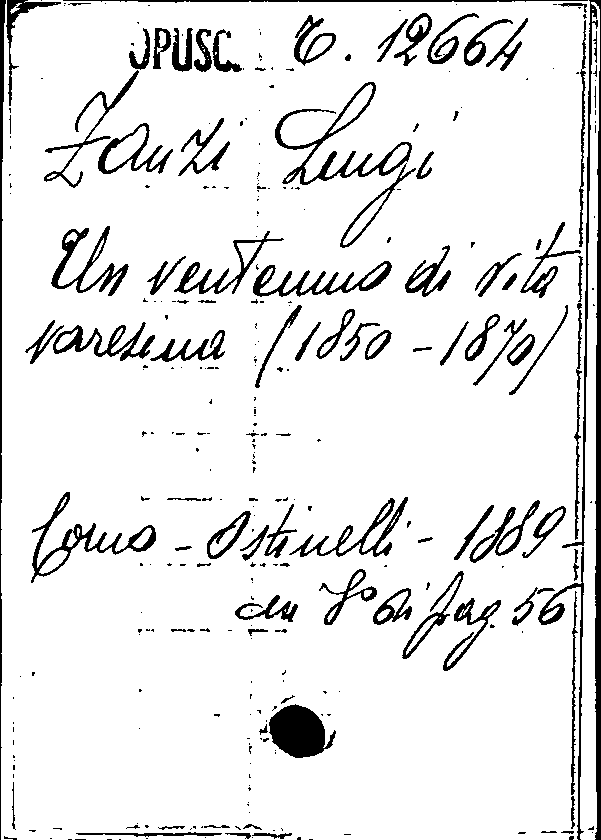 OPUSC. T. 12664
Zanzi Luigi
Un ventennio di vita
varesina (1850 - 1870)
Como - Ostinelli - 1889 -
in 8° di pag. 56